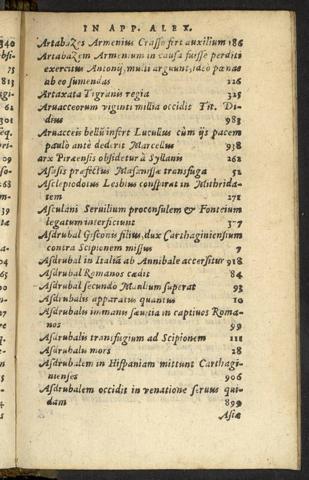 IN APP. ALEX.
Artabazes Armenius Crasso fert auxilium 186
Artabazem Armenium in causa fuisse perditi
exercitus Antonij, multi arguunt, ideo pœnas
ab eo sumendas 226
Artaxata Tigranis regia 325
Aruacceorum viginti millia occidit Tit. Di-
dius 983
Aruacceis bellū infert Lucullus cùm ijs pacem
paulò antè dederit Marcellus 938
arx Piræensis obsidetur à Syllanis 262
Asasis præfectus Masanissæ transfuga 51
Asclepiodotus Lesbius conspirat in Mithrida-
tem 271
Asculani Seruilium proconsulem & Fonteium
legatum interficiunt 377
Asdrubal Gisconis filius, dux Carthaginiensium
contra Scipionem missus 7
Asdrubal in Italiā ab Annibale accersitur 918
Asdrubal Romanos cædit 84
Asdrubal secundo Manlium superat 93
Asdrubalis apparatus quantus 10
Asdrubalis immanis sæuitia in captiuos Roma-
nos 99
Asdrubalis transfugium ad Scipionem 111
Asdrubalis mors 28
Asdrubalem in Hispaniam mittunt Carthagi-
nienses 906
Asdrubalem occidit in venatione seruus qui-
dam 899
Asiæ
340
75
813
61
301
39
58
31